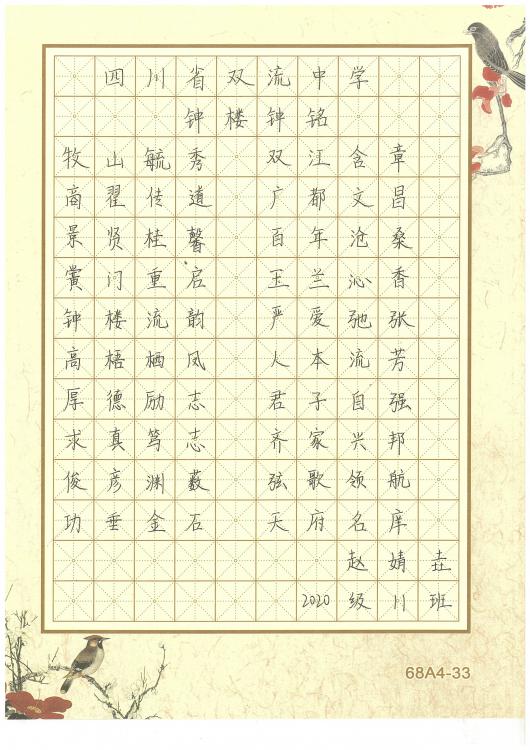 四川省双流中学
钟楼钟铭
牧山毓秀 双江含章
商翟传道 广都文昌
景贤桂馨 百年沧桑
黉门重启 玉兰沁香
钟楼流韵 严爱弛张
高梧栖凤 人本流芳
厚德励志 君子自强
求真笃志 齐家兴邦
俊彦渊薮 弦歌领航
功垂金石 天府名庠
赵婧垚
2020级11班
68A4-33